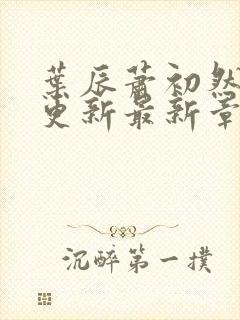 葉辰蕭初然
更新最新章
沉醉第一撲